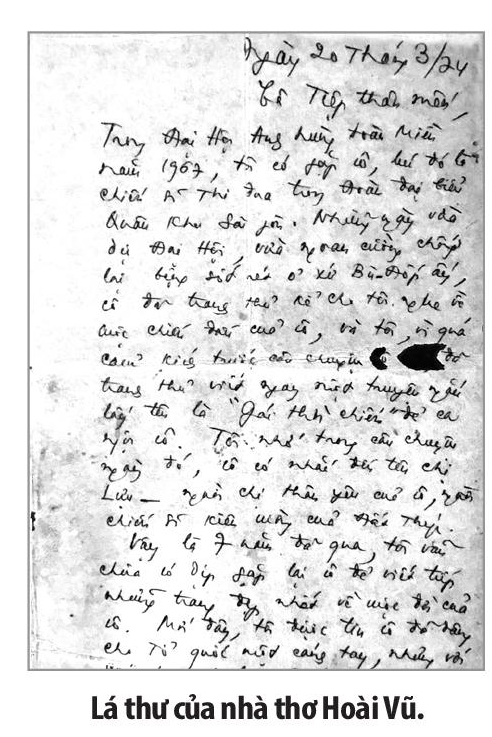 Ngày 20 tháng 3/74
Cô Tiếp thân mến,
Trong Đại Hội Anh hùng toàn Miền
năm 1967, tôi có gặp cô, lúc đó là
chiến sĩ thi đua trong Đoàn đại biểu
Quân khu Sài gòn. Những ngày vừa
dự Đại Hội, vừa ngoan cường chống
lại bệnh sốt rét ở xứ Bù-Đốp ấy,
cô đã trang thủ kể cho tôi nghe về
cuộc chiến đấu của cô, và tôi, vì quá
cảm kích trước câu chuyện đã
trang thủ viết ngay một truyện ngắn
lấy tên là "Gái thời chiến" để ca
ngợi cô. Tôi nhớ trong câu chuyện
ngày đó, cô có nhắc đến tên chị
Lựu – người chị thân yêu của cô, người
chiến sĩ kiên cường của
Vậy là 7 năm đã qua, tôi vẫn
chưa có dịp gặp lại cô để viết tiếp
những trang đẹp nhất về cuộc đời của
cô. Mới đây, tôi được tin cô đã dâng
cho Tổ quốc một cánh tay, nhưng với
Lá thư của nhà thơ Hoài Vũ.